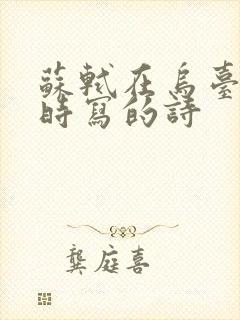 蘇軾在烏臺
時寫的詩
龔庭喜